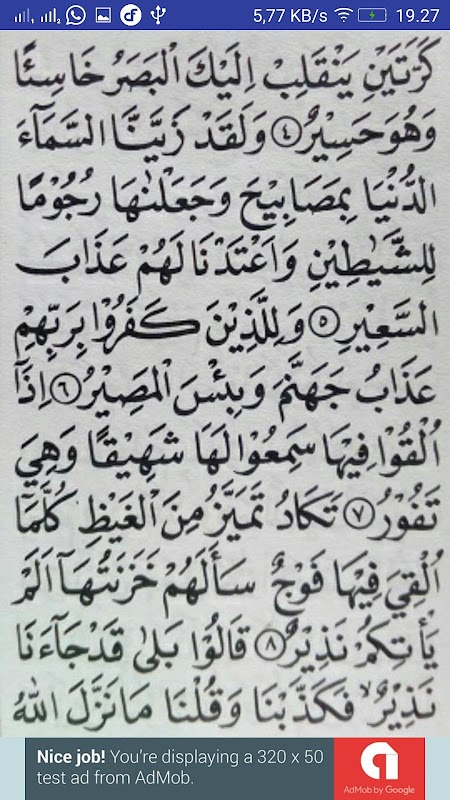 5,77 KB/s 19.27
كَرَّتَيْنِ يَنْقَلِبْ اِلَيْكَ الْبَصَرُ خَاسِئًا
وَهُوَ حَسِيْرٌ ٤ وَلَقَدْ زَيَّنَّا السَّمَآءَ
الدُّنْيَا بِمَصَابِيْحَ وَجَعَلْنٰهَا رُجُوْمًا
لِلشَّيٰطِيْنِ وَاَعْتَدْنَا لَهُمْ عَذَابَ
السَّعِيْرِ ٥ وَلِلَّذِيْنَ كَفَرُوْا بِرَبِّهِمْ
عَذَابُ جَهَنَّمَ وَبِئْسَ الْمَصِيْرُ ٦ اِذَآ
اُلْقُوْا فِيْهَا سَمِعُوْا لَهَا شَهِيْقًا وَهِيَ
تَفُوْرُ ٧ تَكَادُ تَمَيَّزُ مِنَ الْغَيْظِ كُلَّمَآ
اُلْقِيَ فِيْهَا فَوْجٌ سَأَلَهُمْ خَزَنَتُهَآ اَلَمْ
يَأْتِكُمْ نَذِيْرٌ ٨ قَالُوْا بَلٰى قَدْ جَآءَنَا
نَذِيْرٌ فَكَذَّبْنَا وَقُلْنَا مَا نَزَّلَ اللّٰهُ
Nice job! You're displaying a 320 x 50
test ad from AdMob.
AdMob by Google